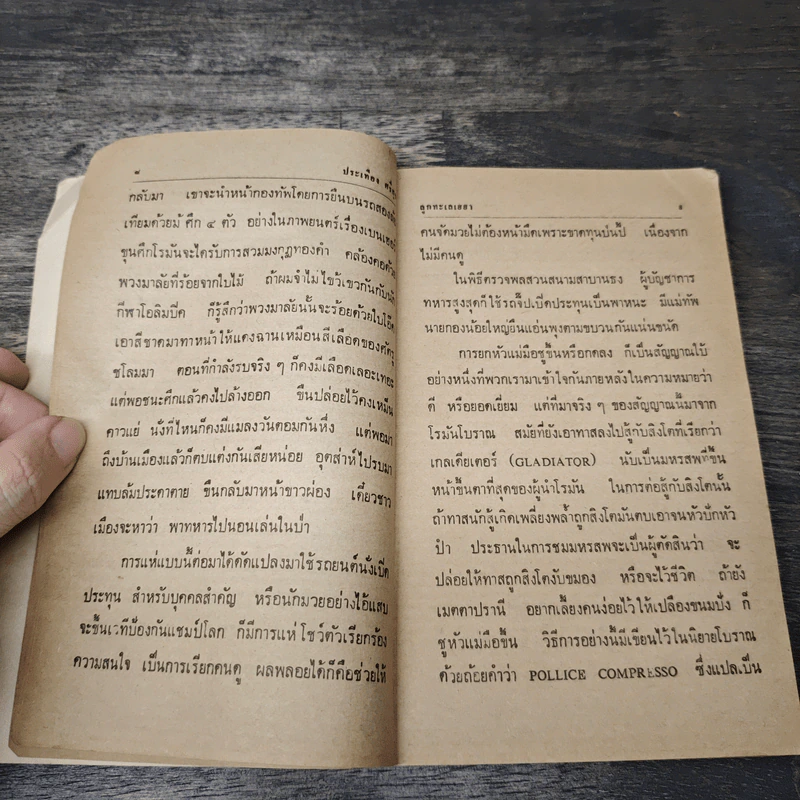 ๘ ประเทือง
กลับมา เขาจะนำหน้ากองทัพโดยการยืนบนรถสอง
เทียมด้วยม้าศึก ๔ ตัว อย่างในภาพยนตร์เรื่องเบนเฮอร์
ขุนศึกโรมันจะได้รับการสวมมงกุฎทองคำ คล้องคอด้วย
พวงมาลัยที่ร้อยจากใบไม้ ถ้าผมจำไม่ไขว้เขวกันกับ
กีฬาโอลิมปิค ก็รู้สึกว่าพวงมาลัยนั้นจะร้อยด้วยใบโอ๊ค
เอาสีชาดมาทาหน้าให้แดงฉานเหมือนสีเลือดของศัตรู
ชโลมมา ตอนที่กำลังรบจริง ๆ ก็คงมีเลือดเลอะเทอะ
แต่พอชนะศึกแล้วคงไปล้างออก ขืนปล่อยไว้คงเหม็น
คาวแย่ นั่งที่ไหนก็คงมีแมลงวันตอมกันหึ่ง แต่พอมา
ถึงบ้านเมืองแล้วก็ตบแต่งกันเสียหน่อย อุตส่าห์ไปรบมา
แทบล้มประดาตาย ขืนกลับมาหน้าขาวผ่อง เดี๋ยวชาว
เมืองจะหาว่า พาทหารไปนอนเล่นในป่า
การแห่แบบนี้ต่อมาได้ดัดแปลงมาใช้รถยนต์นั่งเปิด
ประทุน สำหรับบุคคลสำคัญ หรือนักมวยอย่างไอ้แสบ
จะขึ้นเวทีป้องกันแชมป์โลก ก็มีการแห่โชว์ตัวเรียกร้อง
ความสนใจ เป็นการเรียกคนดู ผลพลอยได้ก็คือช่วยให้
ลูกทะเลเฮฮา ๙
คนจัดมวยไม่ต้องหน้ามืดเพราะขาดทุนป่นปี้ เนื่องจาก
ไม่มีคนดู
ในพิธีตรวจพลสวนสนามสาบานธง ผู้บัญชาการ
ทหารสูงสุดก็ใช้รถจี๊ปเปิดประทุนเป็นพาหนะ มีแม่ทัพ
นายกองน้อยใหญ่ยืนแอ่นพุงตามขบวนกันแน่นขนัด
การยกหัวแม่มือชูขึ้นหรือกดลง ก็เป็นสัญญาณใบ้
อย่างหนึ่งที่พวกเรามาเข้าใจกันภายหลังในความหมายว่า
ดี หรือยอดเยี่ยม แต่ที่มาจริง ๆ ของสัญญาณนี้มาจาก
โรมันโบราณ สมัยที่ยังเอาทาสลงไปสู้กับสิงโตที่เรียกว่า
เกลเดียเตอร์ (GLADIATOR) นับเป็นมหรสพที่ขึ้น
หน้าขึ้นตาที่สุดของผู้นำโรมัน ในการต่อสู้กับสิงโตนั้น
ถ้าทาสนักสู้เกิดเพลี่ยงพล้ำถูกสิงโตมันตบเอาจนหัวปักหัว
ปำ ประธานในการชมมหรสพจะเป็นผู้ตัดสินว่า จะ
ปล่อยให้ทาสถูกสิงโตงับขมอง หรือจะไว้ชีวิต ถ้ายัง
เมตตาปรานี อยากเลี้ยงคนง่อยไว้ให้เปลืองขนมปัง ก็
ชูหัวแม่มือขึ้น วิธีการอย่างนี้มีเขียนไว้ในนิยายโบราณ
ด้วยถ้อยคำว่า POLLICE COMPRESSO ซึ่งแปลเป็น